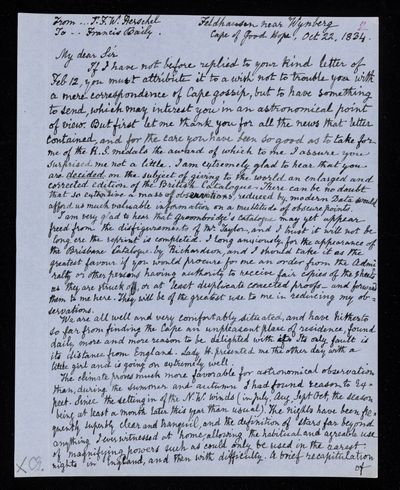 From ... J.F.W. Herschel
To .. Francis Baily.
Feldhausen near Wynberg
Cape of Good Hope, Oct 22, 1834.
My dear Sir
If I have not before replied to your kind letter of
Feb 12, you must attribute it to a wish not to trouble you with
a mere correspondence of Cape gossip, but to have something
to send, which may interest you in an astronomical point
of view. But first let me thank you for all the news that letter
contained, and for the care you have been so good as to take for
me of the R.S. medals the award of which to me I assure you
surprised me not a little. I am extremely glad to hear that you
are decided on the subject of giving to the world an enlarged and
corrected edition of the British Catalogue. There can be no doubt
that so extensive a mass of observations, reduced by modern Data would
afford us much valuable information on a multitude of obscure points.
I am very glad to hear that Groombridge's catalogue may yet appear
freed from the disfigurements of Mr Taylor, and I trust it will not be
long ere the reprint is completed. I long anxiously for the appearance of
the Brisbane Catalogue by Richardson, and I should take it as the
greatest favour if you would procure for me an order from the Admi
ralty or other persons having authority to receive fair copies of the sheets
as they are struck off, or at least duplicate corrected proofs and forward
them to me here. They will be of the greatest use to me in reducing my ob-
servations.
We are all well and very comfortably situated, and have hitherto
so far from finding the Cape an unpleasant place of residence, found
daily more and more reason to be delighted with it. Its only fault is
its distance from England. Lady H. presented me the other day with a
little girl and is going on extremely well.
The climate proves much more favorable for astronomical observation
than, during the summer and autumn I had found reason to ex-
pect. Since the setting in of the N.W. winds (in July, Aug, Sept Oct, the season
being at least a month later this year than usual). The nights have been fre
quently superbly clear and tranquil, and the definition of stars far beyond
anything I ever witnessed at home, allowing the habitual and agreeable use
of magnifying powers such as could only be used in the rarest
nights in England, and then with difficulty. A brief recapitulation
of